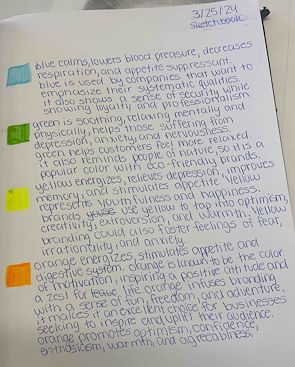 3/25/24
sketchbook
blue calms, lowers blood preasure, decreases
respiration, and appetite suppressant.
blue is used by companies that want to
emphasize their systematic qualities.
it also shows a sense of security while
showing loyalty and professionalism
green is soothing, relaxing mentally and
physically, helps those suffering from
depression, anxiety, and nervousness.
green helps customers feel more relaxed.
it also reminds people of nature, so it is a
popular color with eco-friendly brands.
yellow energizes, relieves depression, improves
memory, and stimulates appetite. Yellow
represents youthfulness and happiness.
brands use yellow to tap into optimism,
creativity, extroversion, and warmth. Yellow
branding could also foster feelings of fear,
irrationality, and anxiety.
orange energizes, stimulates appetite and
digestive system. orange is known to be the color
of motivation, inspiring a positive attitude and
a zest for life. orange infuses branding
with a sense of fun, freedom, and adventure.
it makes it an excellent choice for businesses
seeking to inspire and uplift their audience.
orange promotes optimism, confidence,
enthusicsm, warmth, and agreeableness.